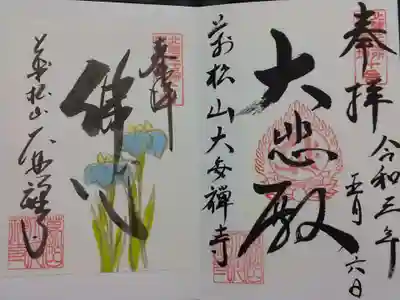 奉拝
令和三年
五月六日
大悲殿
萬松山大安禅寺
奉拝
佛心
萬松山大安禅寺